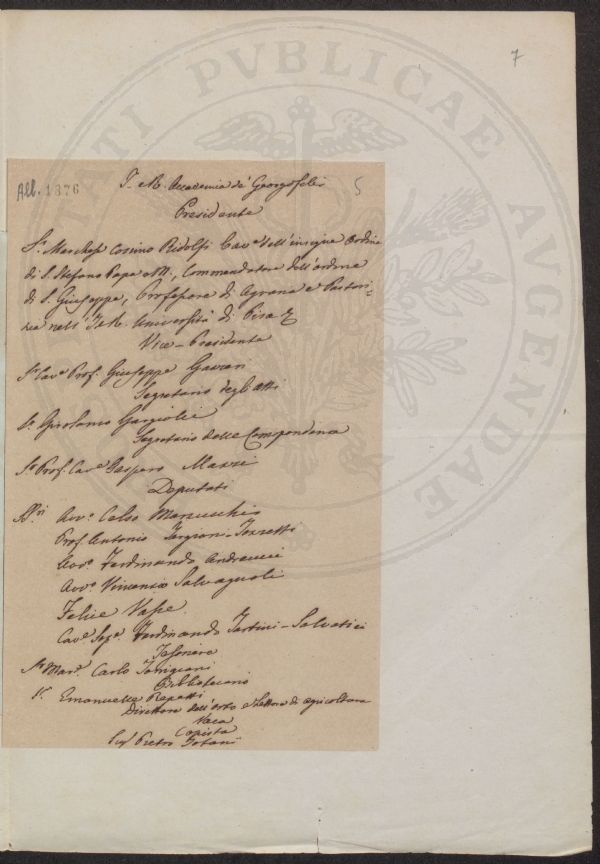 7
PUBLICAE
AUGENDAE
All. 1876
5
I. e R. Accademia de' Georgofili
Presidente
Sr. Marchese Cosimo Ridolfi Cave dell'insigne Ordine
di S. Stefano Papa e M., Commendatore dell'ordine
di S. Giuseppe, Professore di Agraria e Pastori=
zia nell' I. e R. Università di Pisa
Vice-Presidente
Sr Cave Prof. Giuseppe Gazzeri
Segretario degli Atti
Sr. Girolamo Gargiolli
Segretario delle Corrispondenze
Sr Prof. Cave Gaspero Mazzi
Deputati
Avvo. Celso Marzucchi
Prof. Antonio Targioni-Tozzetti
Avvo. Ferdinando Andreucci
Avvo Vincenzio Salvagnoli
Felice Vasse
Cave Ferdinando Tartini-Salvatici
Tesoriere
Sr Marc. Carlo Torrigiani
Bibliotecario
Sr. Emanuelle Repetti
Direttore dell'Orto e Lettore di agricoltura
Vaca
Copista
Pietro